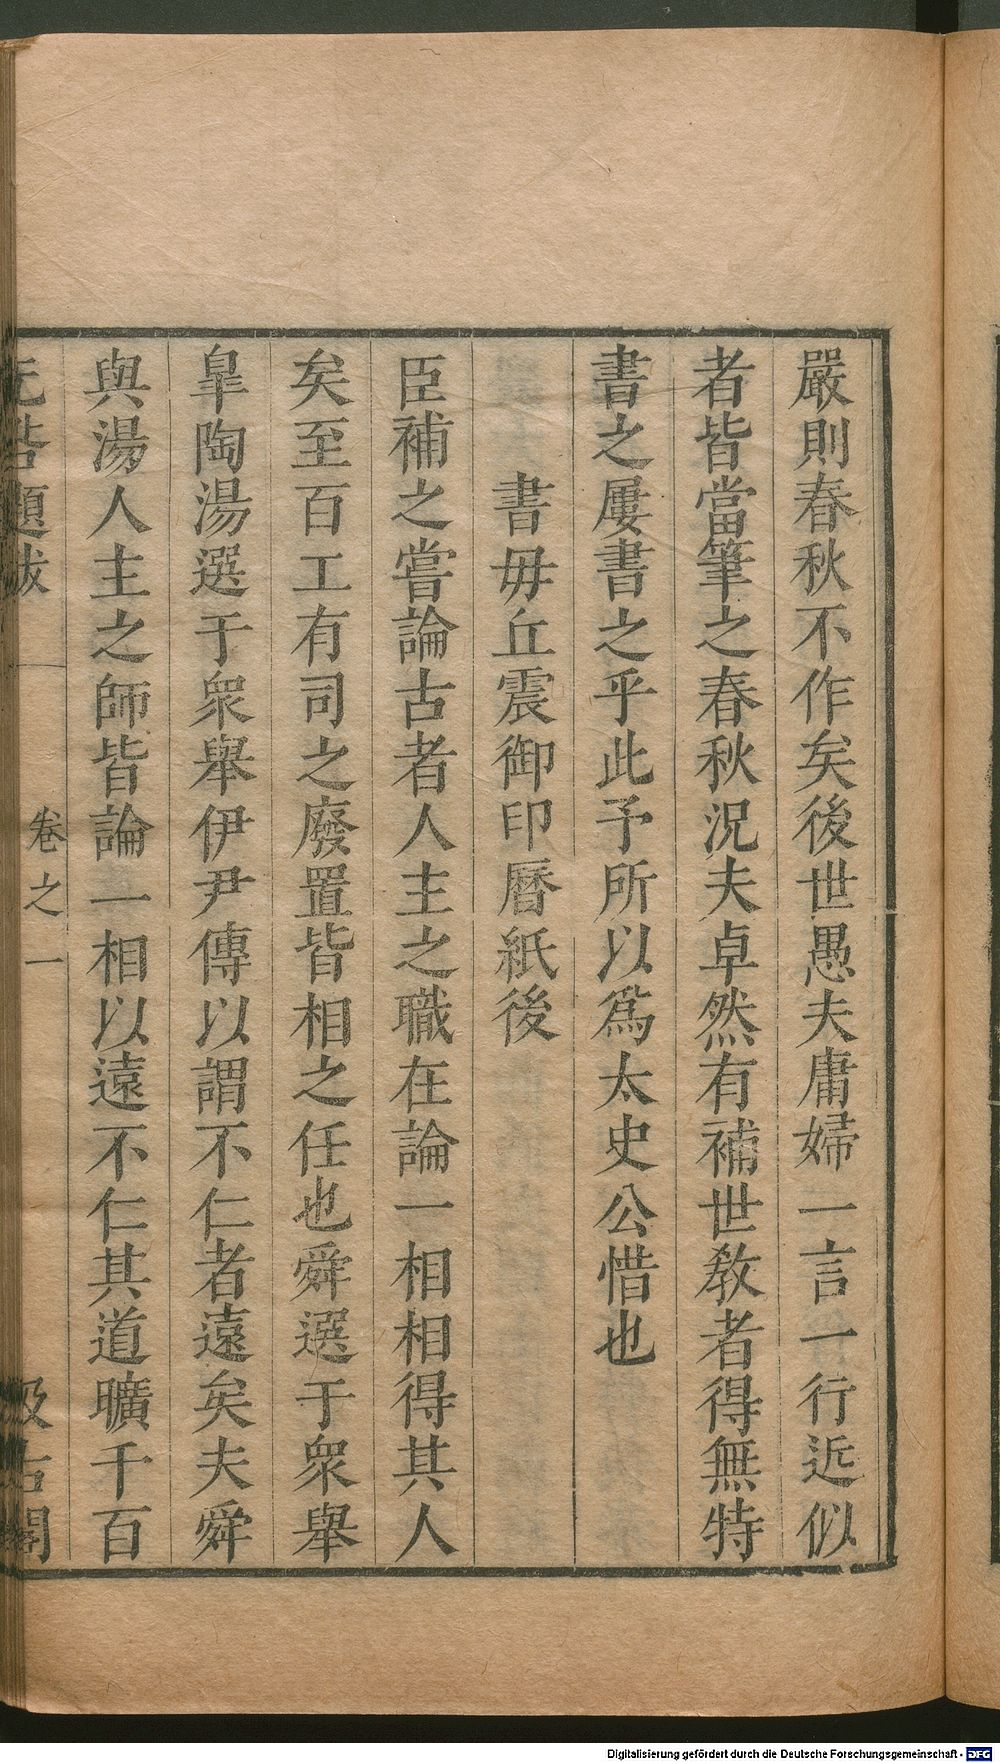 嚴則春秋不作矣後世愚夫庸婦一言一行近似
者皆當筆之春秋況夫卓然有補世敎者得無特
書之屢書之乎此予所以爲太史公惜也
書毋丘震御印曆紙後
臣補之嘗論古者人主之職在論一相相得其人
矣至百工有司之廢置皆相之任也舜選于衆舉
皐陶湯選于衆舉伊尹傳以謂不仁者遠矣夫舜
與湯人主之師皆論一相以遠不仁其道曠千百
无咎題跋 卷之一 汲古閣
Digitalisierung gefördert durch die Deutsche Forschungsgemeinschaft - DFG